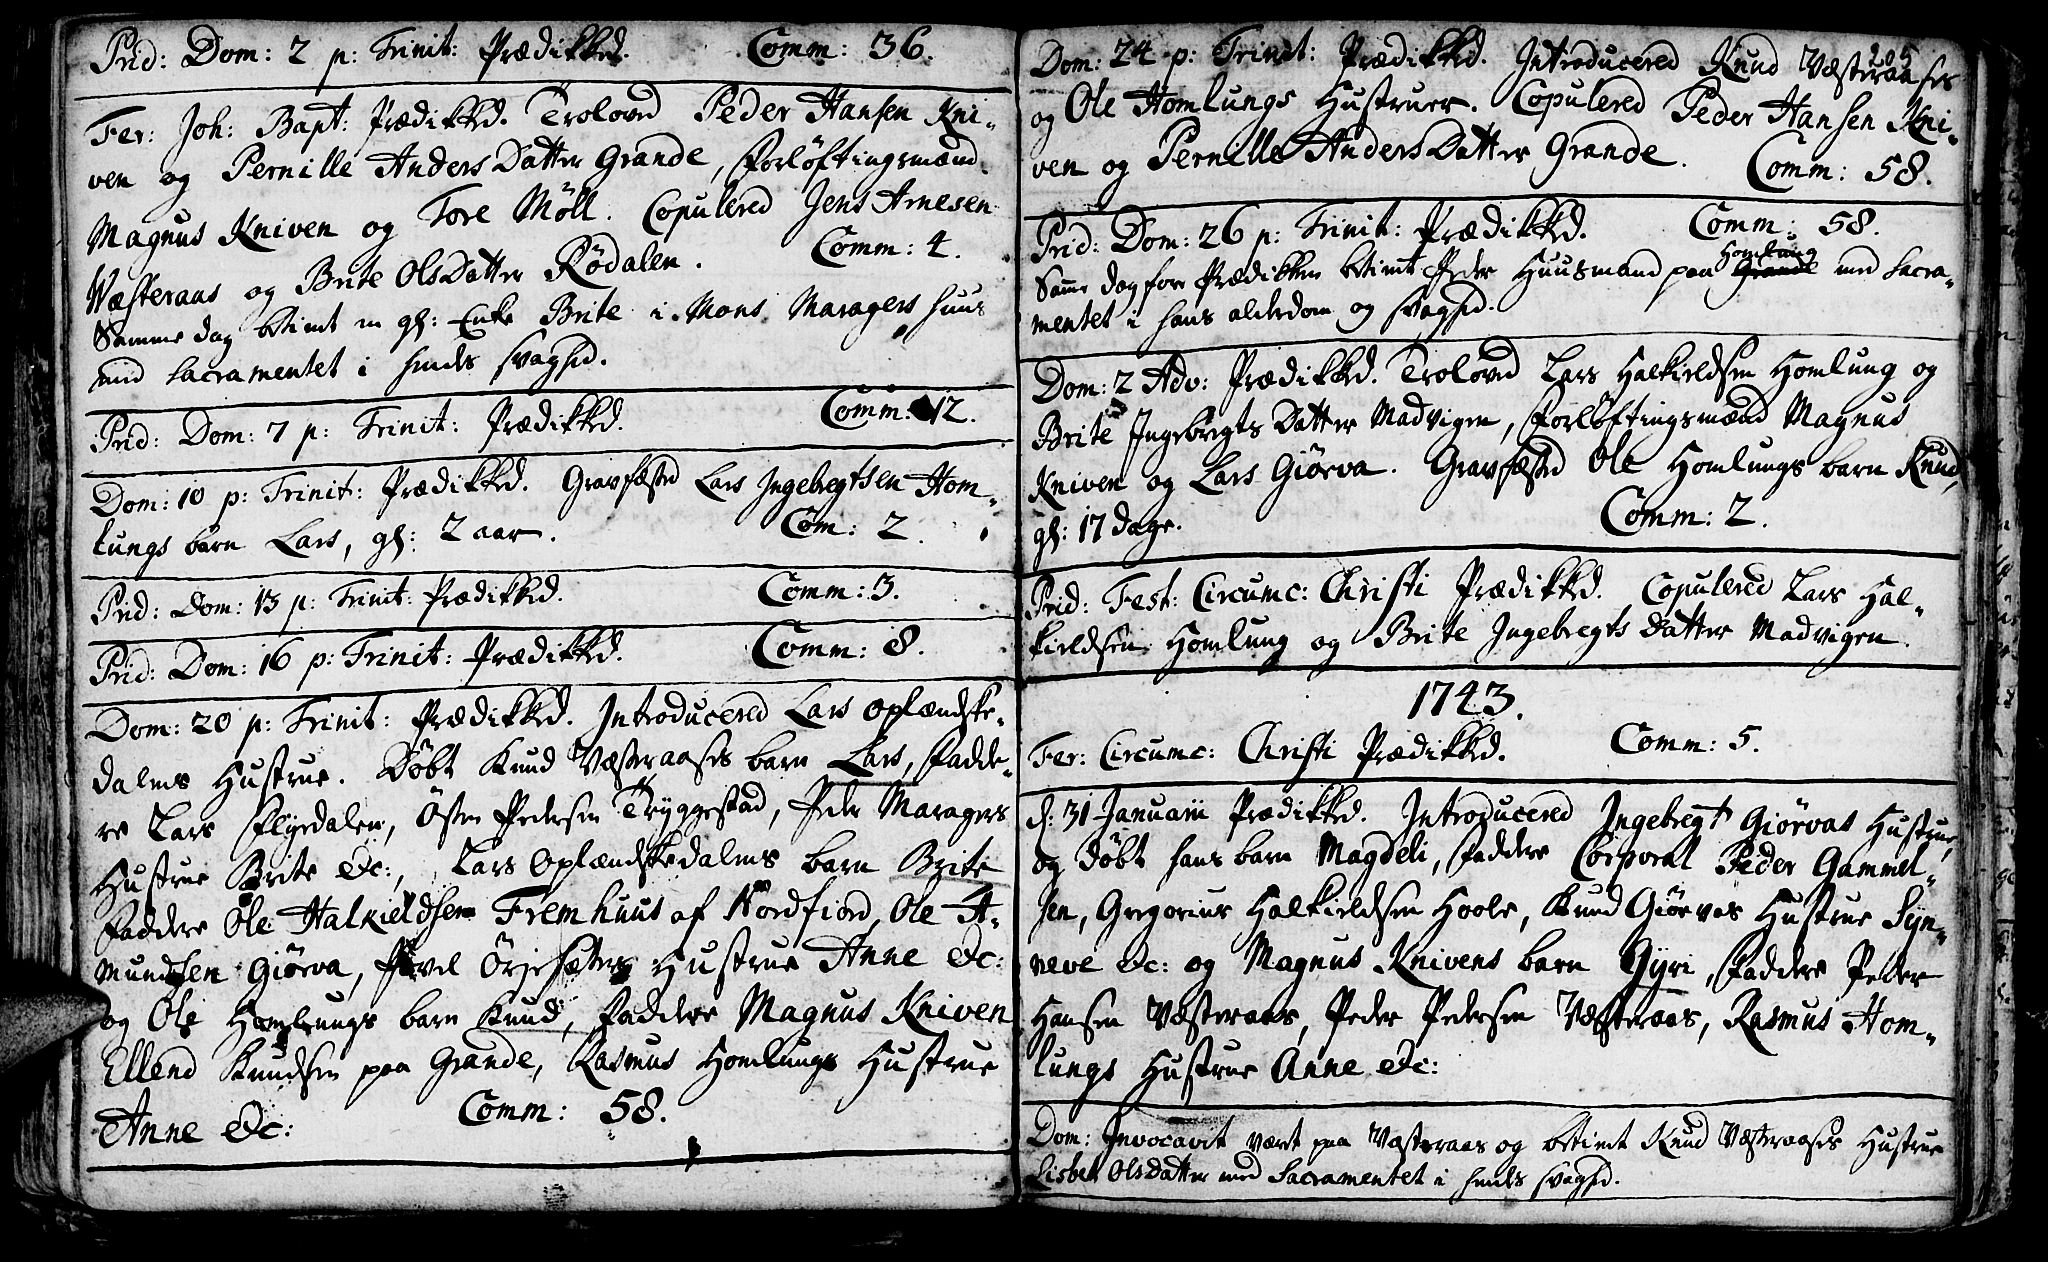 Prid: Dom: 2 p: Trinit: Prædikked. Comm: 36.
Fer: Joh: Bapt: Prædikked. Troloved Peder Hansen Kni-
ven og Pernille AndersDatter Grande, Forløftingsmænd
Magnus Kniven og Tore Möll. Copulered Jens Arnesen
Wæsteraas og Brite OlsDatter Rødalen. Comm: 4.
Samme dag betient en gl: Enke Brite i Mons Maragers huus
med Sacramentet i hendes svaghed.
Prid: Dom: 7 p: Trinit: Prædikked. Comm: 12.
Dom: 10 p: Trinit: Prædikked. Gravfæsted Lars Ingebregtsen Hom-
lungs barn Lars, gl: 2 aar. Com: 2.
Prid: Dom: 13 p: Trinit: Prædikked. Comm: 3.
Prid: Dom: 16 p: Trinit: Prædikked. Comm: 8.
Dom: 20 p: Trinit: Prædikked. Introducered Lars Oplændske-
dalens Hustrue. Döbt Knud Væsteraases barn Lars, Fadde-
re Lars Flyedalen, Östen Pedersen Tryggestad, Peder Maragers
Hustrue Brite &c:, Lars Oplændskedalens barn Brite
Faddere Ole Halkieldsen Fremhuus af Nordfiord, Ole A-
mundsen Giörva, Povel Örjesæters Hustrue Anne &c:
og Ole Homlungs barn Knud, Faddere Magnus Kniven
Ellend Knudsen paa Grande, Rasmus Homlungs Hustrue
Anne &c: Comm: 58.
205
Dom: 24 p: Trinit: Prædikked. Introducered Knud Væsteraases
og Ole Homlungs Hustruer. Copulered Peder Hansen Kni-
ven og Pernille AndersDatter Grande. Comm: 58.
Prid: Dom: 26 p: Trinit: Prædikked. Comm: 58.
Homlung
Samme dag fore Prædikken betient Peder Huusmand paa Grande med Sacra-
mentet i hans alderdom og svaghed.
Dom: 2 Adv: Prædikked. Troloved Lars Halkieldsen Homlung og
Brite Ingebregts Datter Madvigen, Forløftingsmænd Magnus
Kniven og Lars Giörva. Gravfæsted Ole Homlungs barn Knud,
gl: 17 dage. Comm: 2.
Prid: Fest: Circumc: Christi Prædikked. Copulered Lars Hal-
kieldsen Homlung og Brite Ingebregts Datter Madvigen.
1743.
Fer: Circumc: Christi Prædikked. Comm: 5.
d: 31 Januarii Prædikked. Introducered Ingebregt Giörvas Hustrue,
og döbt hans barn Magdeli, Faddere Corporal Peder Gammel-
sen, Gregorius Halkieldsen Hoole, Knud Giörvas Hustrue Syn-
neve &c: og Magnus Knivens barn Gyri, Faddere Peder
Hansen Væsteraas, Peder Pedersen Væsteraas, Rasmus Hom-
lungs Hustrue Anne &c:
Dom: Invocavit været paa Væsteraas og betient Knud Væsteraases Hustrue
Lisbet OlsDatter med Sacramentet i hendes svaghed.